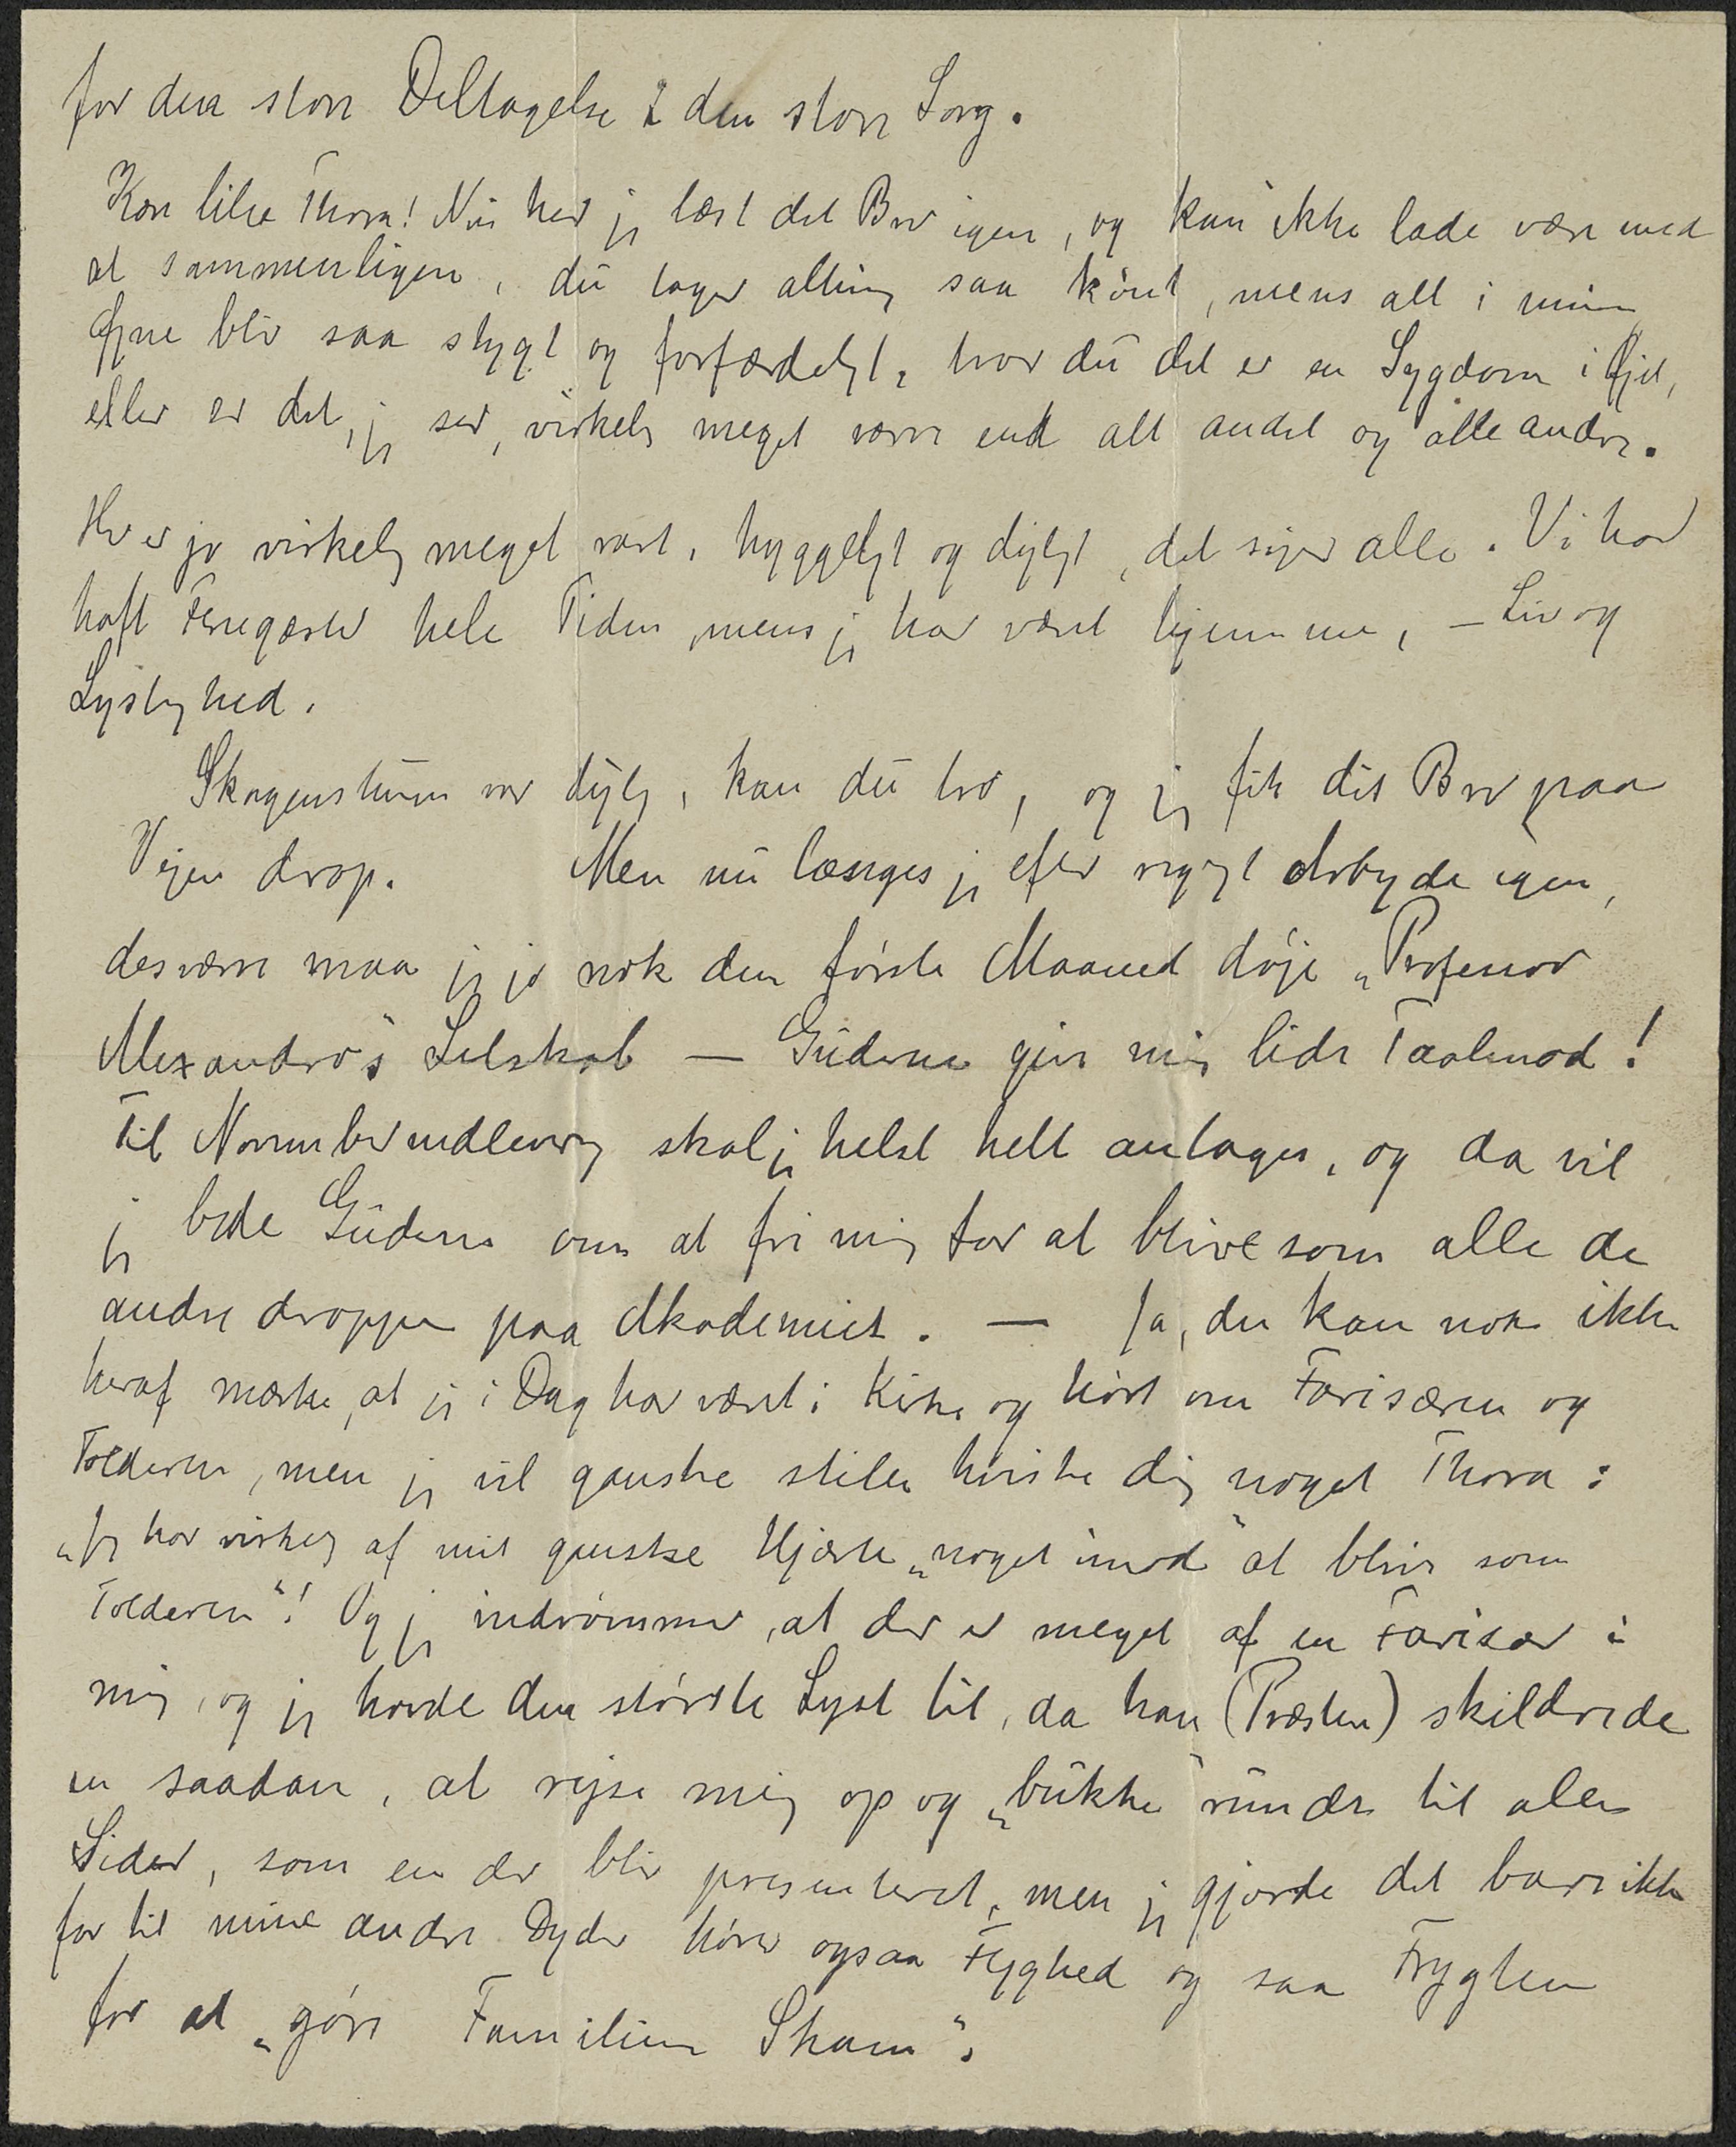 for den store Deltagelse i den store Sorg.
Kære lille Thora! Nu har jeg læst det Brev igen, og kan ikke lade være med
at sammenligne, du tager alting saa kønt, mens alt i mine
Øjne blir saa stygt og forfærdeligt, tror du det er en Sygdom i Øjet,
eller er det, jeg ser, virkelig meget værre end alt andet og alle andre.
Her er jo virkelig meget rart, hyggeligt og dejligt, det siger alle. Vi har
haft Feriegæster hele Tiden, mens jeg har været hjemme, – Liv og
Lystighed.
Skagensturen var dejlig, kan du tro, og jeg fik dit Brev paa
Vejen derop. Men nu længes jeg efter rigtigt Arbejde igen,
desværre maa jeg jo nok den første Maaned døje „Professor
Alexandro's" Selskab — Guderne give mig lidt Taalmod!
Til Novemberindlevering skal jeg helst helt antages, og da vil
jeg bede Guderne om at fri mig for at blive som alle de
andre deroppe paa Akademiet. — Ja, du kan nok ikke
heraf mærke, at jeg i Dag har været i Kirke og hørt om Farisæren og
Tolderen, men jeg vil ganske stille hviske dig noget Thora:
„Jeg har virkelig af mit ganske Hjærte „noget imod" at blive som
Tolderen"! Og jeg indrømmer, at der er meget af en Farisær i
mig, og jeg havde den største Lyst til, da han (Præsten) skildrede
en saadan, at rejse mig op og „bukke" rundt til alle
Sider, som en der blir presenteret, men jeg gjorde det bare ikke
for til mine andre Dyder hører ogsaa Fejghed og saa Frygten
for at „gøre Familien Skam".